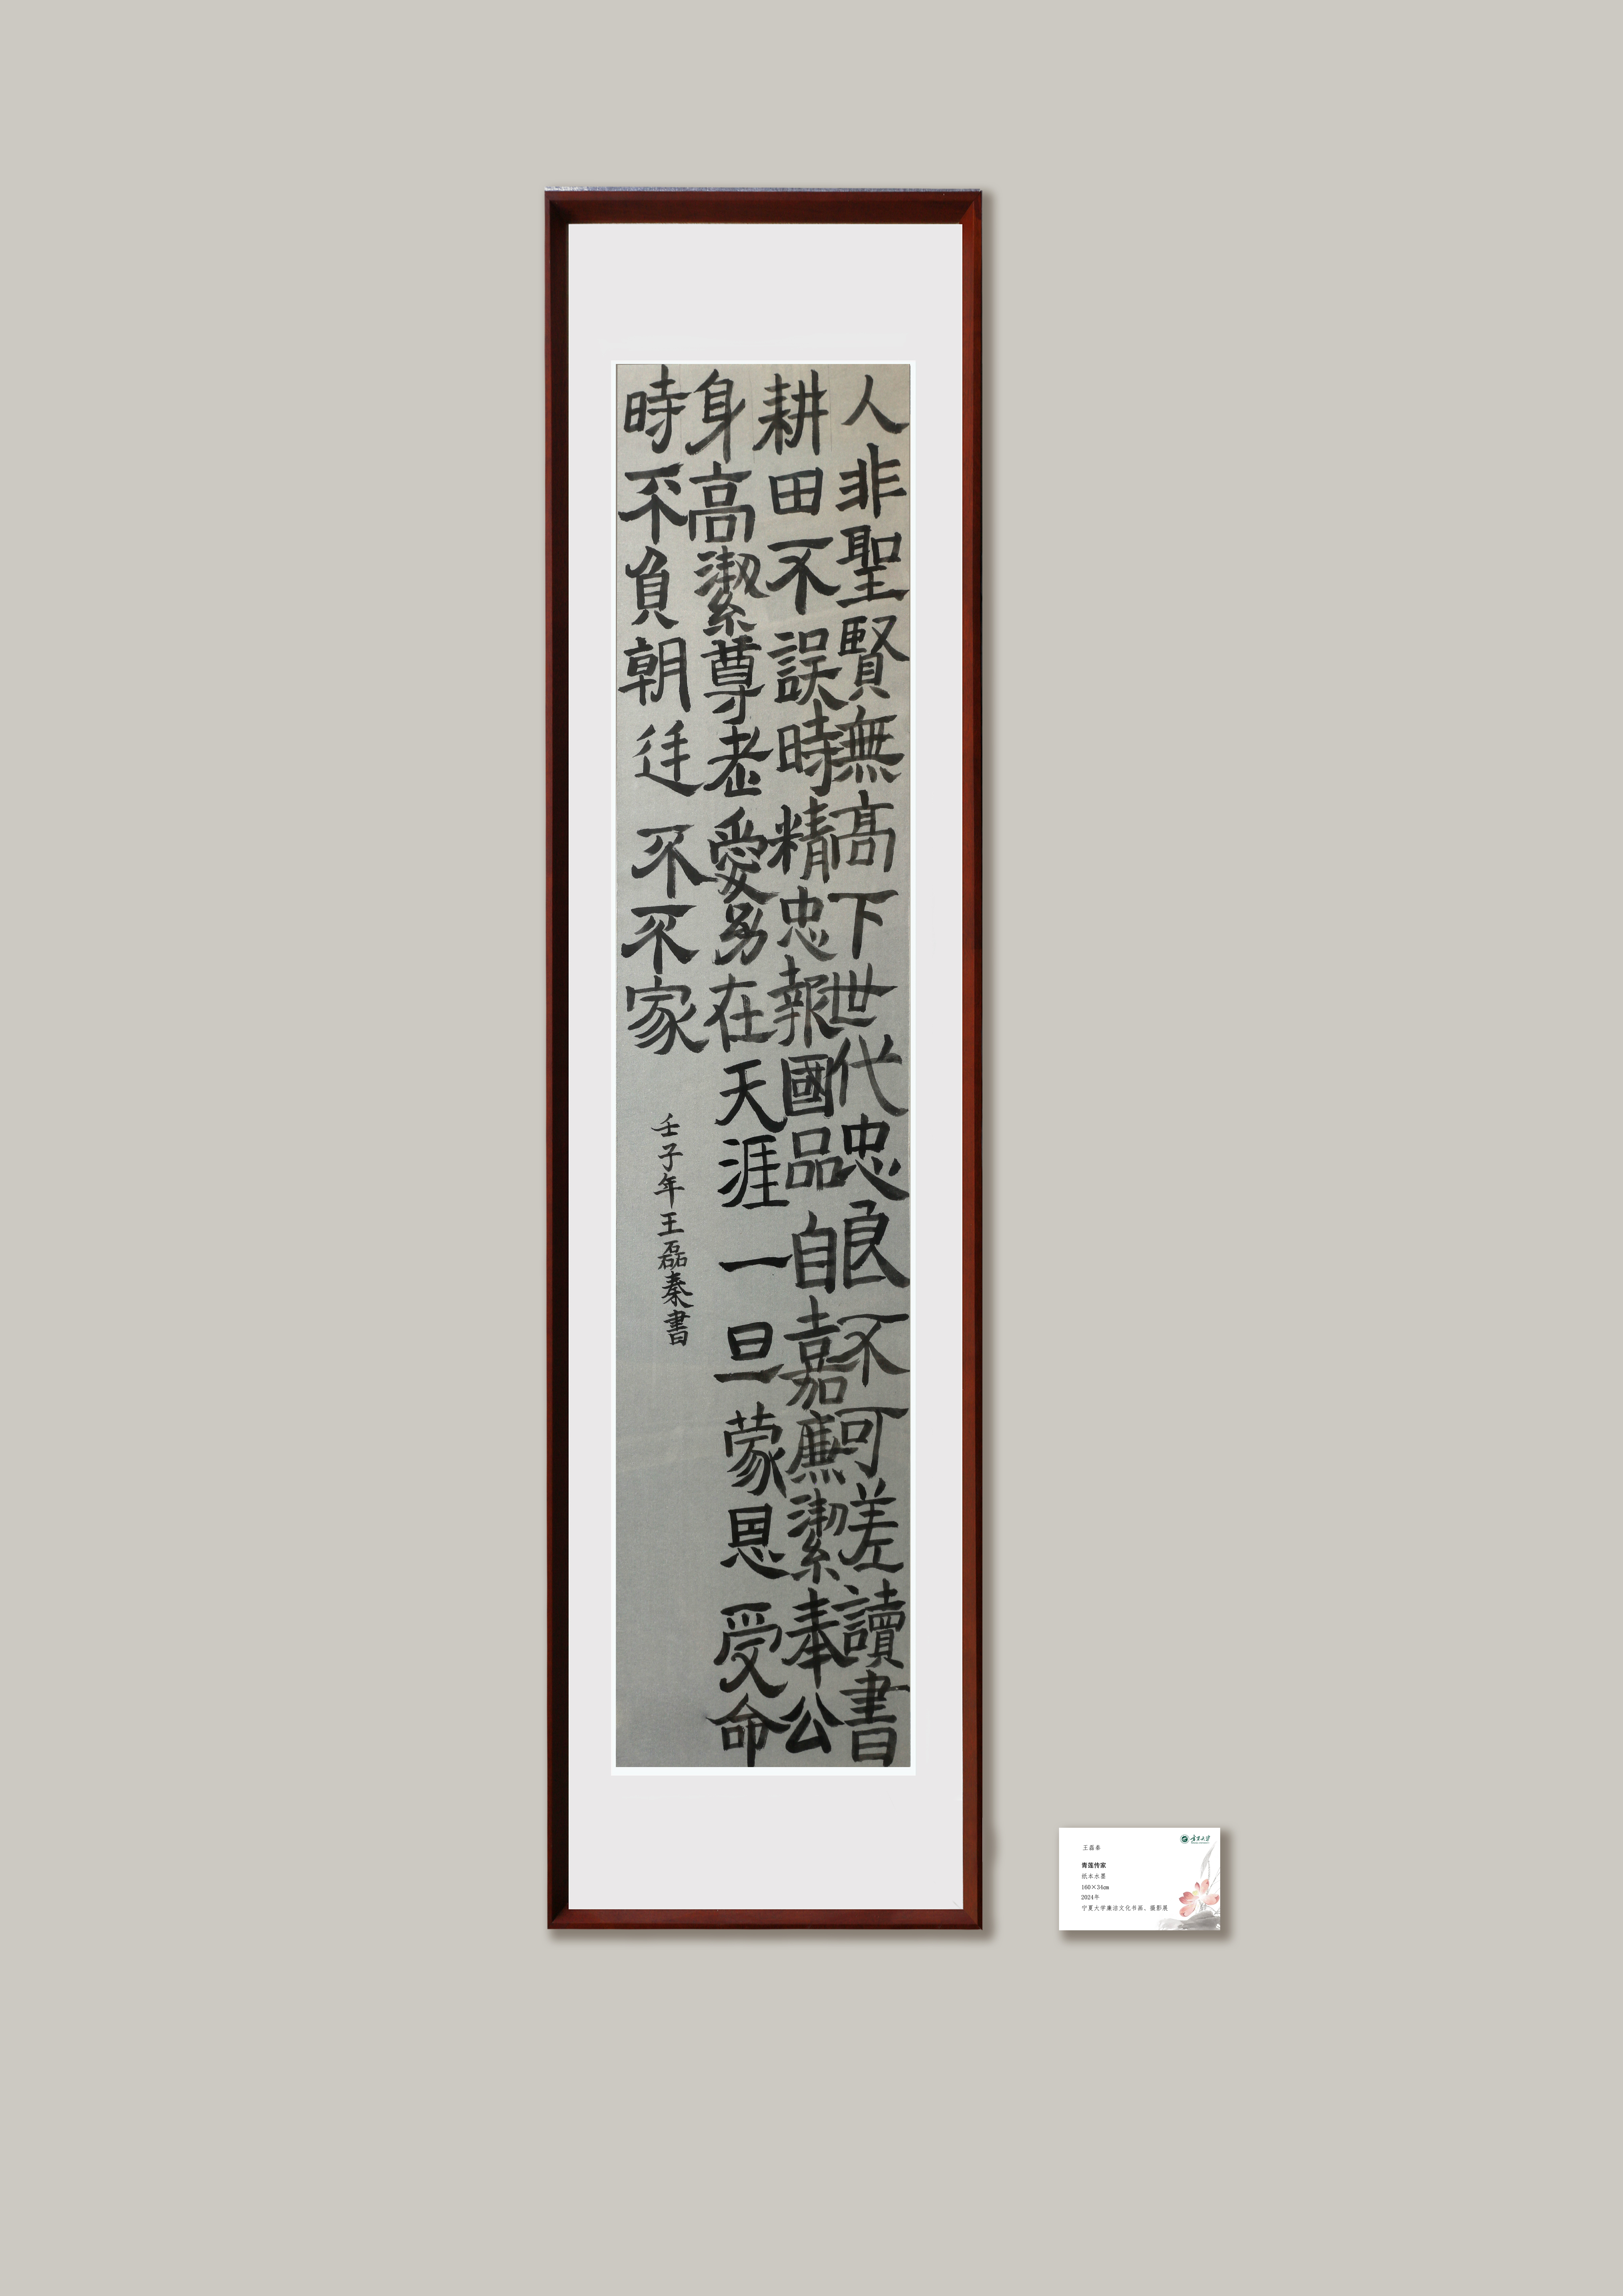 人非聖賢無高下世代忠良不可差讀書
耕田不誤時精忠報國品自嘉廉潔奉公
身高潔尊老愛幼在天涯一旦蒙恩受命
時不負朝廷不不家
壬子年王磊秦書
宁夏大学
王磊秦
青莲传家
纸本水墨
160×34cm
2024年
宁夏大学廉洁文化书画、摄影展